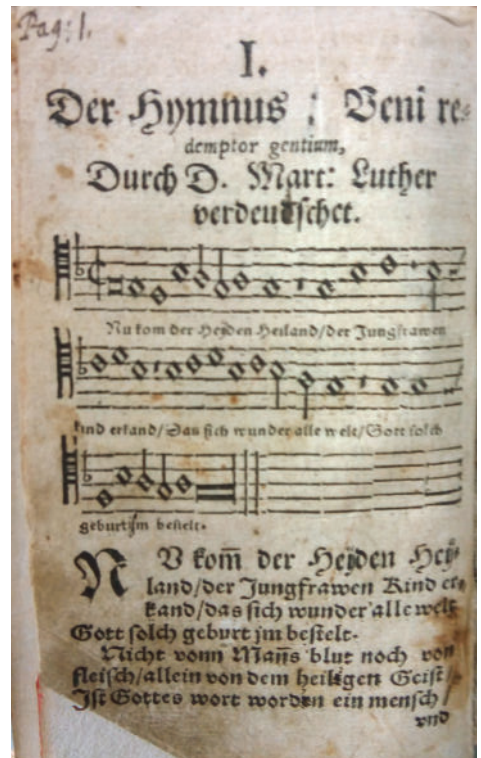 Pag: 1.
I.
Der Hymnus: Veni re-
demptor gentium,
Durch D. Mart: Luther
verdeudschet.
Nu kom der Heyden Heiland/der Jungfrawen
kind erkand/Das sich wunder alle welt/Gott solch
geburt jm bestelt.
NU kom̄ der Heyden Hei-
land/der Jungfrawen Kind er-
kand/das sich wunder alle welt
Gott solch geburt jm bestelt.
Nicht vonn Man̄s blut noch von
fleisch/allein von dem heiligen Geist/
Ist Gottes wort worden ein mensch
vnd